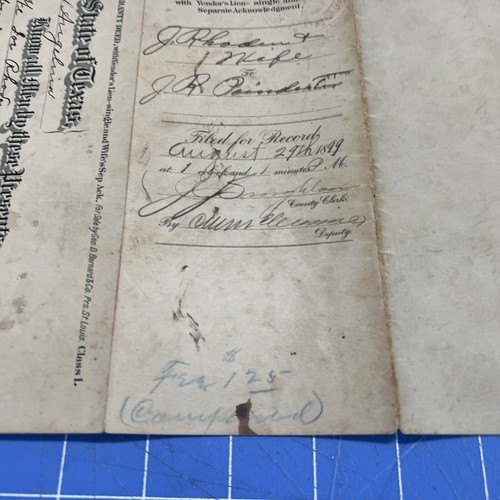 State of Texas,
Angelina
Know all Men by these Presents:
WARRANTY DEED, with Vendor's Lien-single and Wife's Sep. Ack. For Sale by Geo. D. Barnard & Co. Prs. St Louis. Class 1.
with Vendor's Lien- single and
Separate Acknowledgment
J. Rhoden &
Wife
To
J. R. Poindexter
Filed for Record
August 29th 1899
at 1 o'clock and 1 minutes P. M.
County Clerk.
By
Deputy.
Fee $1 25
(Compared)